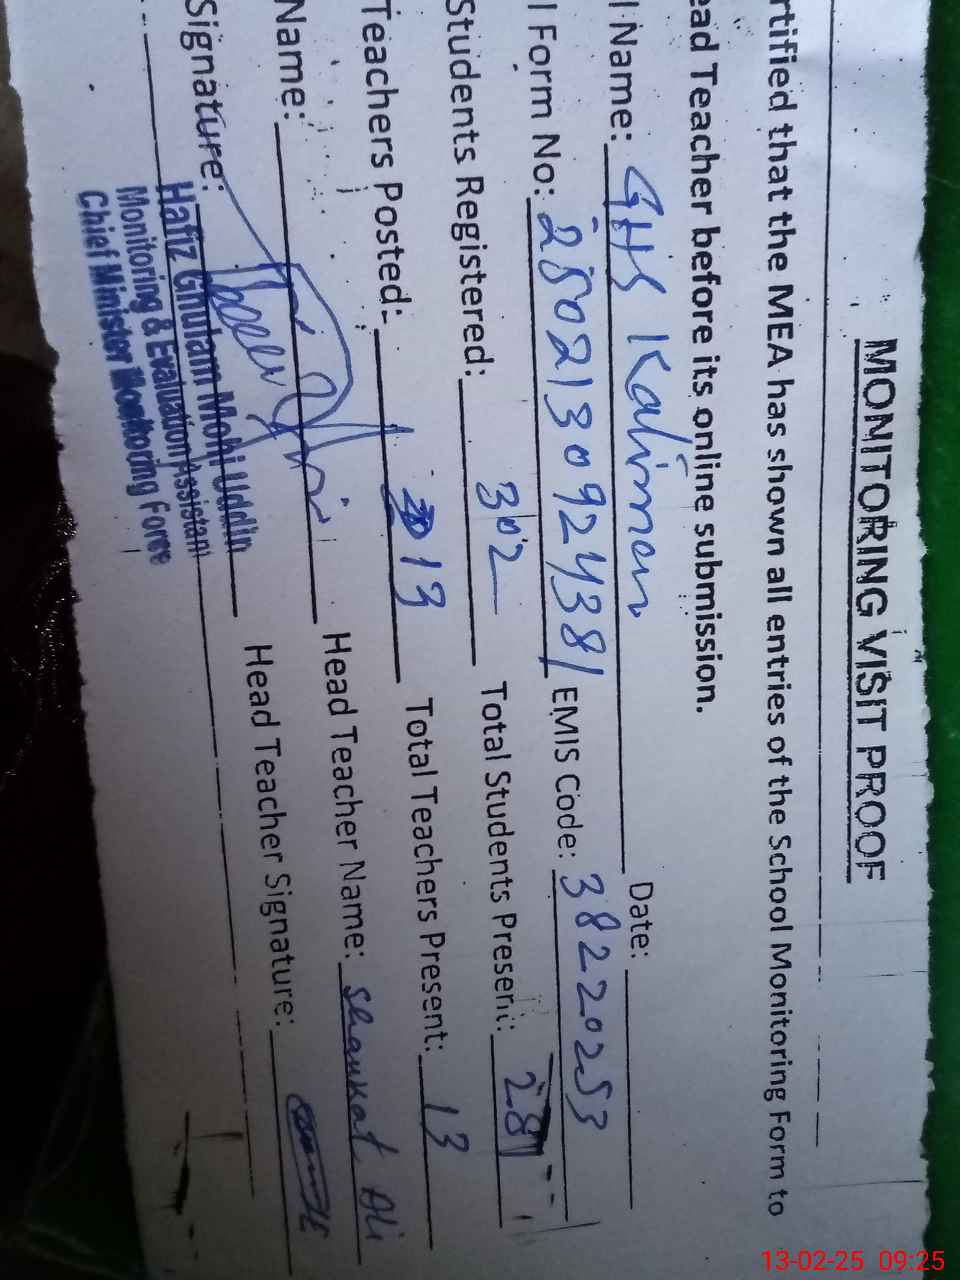 MONITORING VISIT PROOF
rtified that the MEA has shown all entries of the School Monitoring Form to
ead Teacher before its online submission.
l Name: GHS Kalimon Date:
l Form No: 280213092438 EMIS Code: 38220253
Students Registered: 302 Total Students Present: 281
Teachers Posted:- 13 Total Teachers Present: 13
Name: Head Teacher Name: Shaukat Ali
Signature: Head Teacher Signature:
Hafiz Ghulam Mohi Uddin
Monitoring & Evaluation Assistant
Chief Minister Monitoring Force
13-02-25 09:25